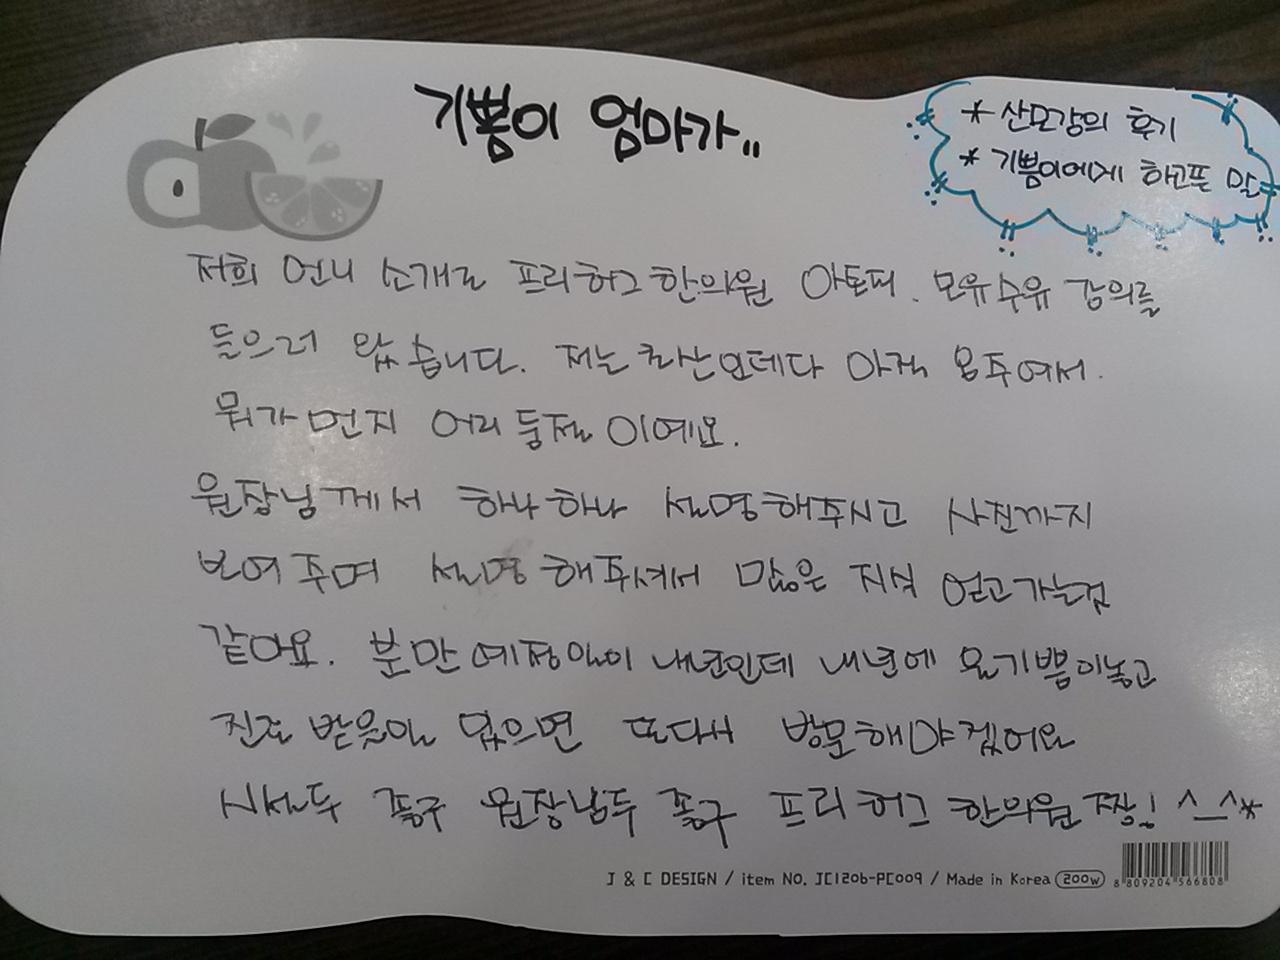 기쁨이 엄마가..
* 산모강의 후기
* 기쁨이에게 하고픈 말
저희 언니 소개로 프리허그한의원 아토피. 모유수유 강의를
들으러 왔습니다. 저는 초산인데다 아직 8주여서.
뭐가먼지 어리둥절 이에요.
원장님께서 하나하나 설명해주시고 사진까지
보여주며 설명해주셔서 많은 지식 얻고가는것
같아요. 분만예정일이 내년인데 내년에 울기쁨이낳고
진료 받을일 있으면 또다시 방문해야겠어요
시설두 좋구 원장님두 좋구 프리허그 한의원 짱! ^_^*
J & C DESIGN / item NO. JC1206-PC009 / Made in Korea 200w
8 809204 566808